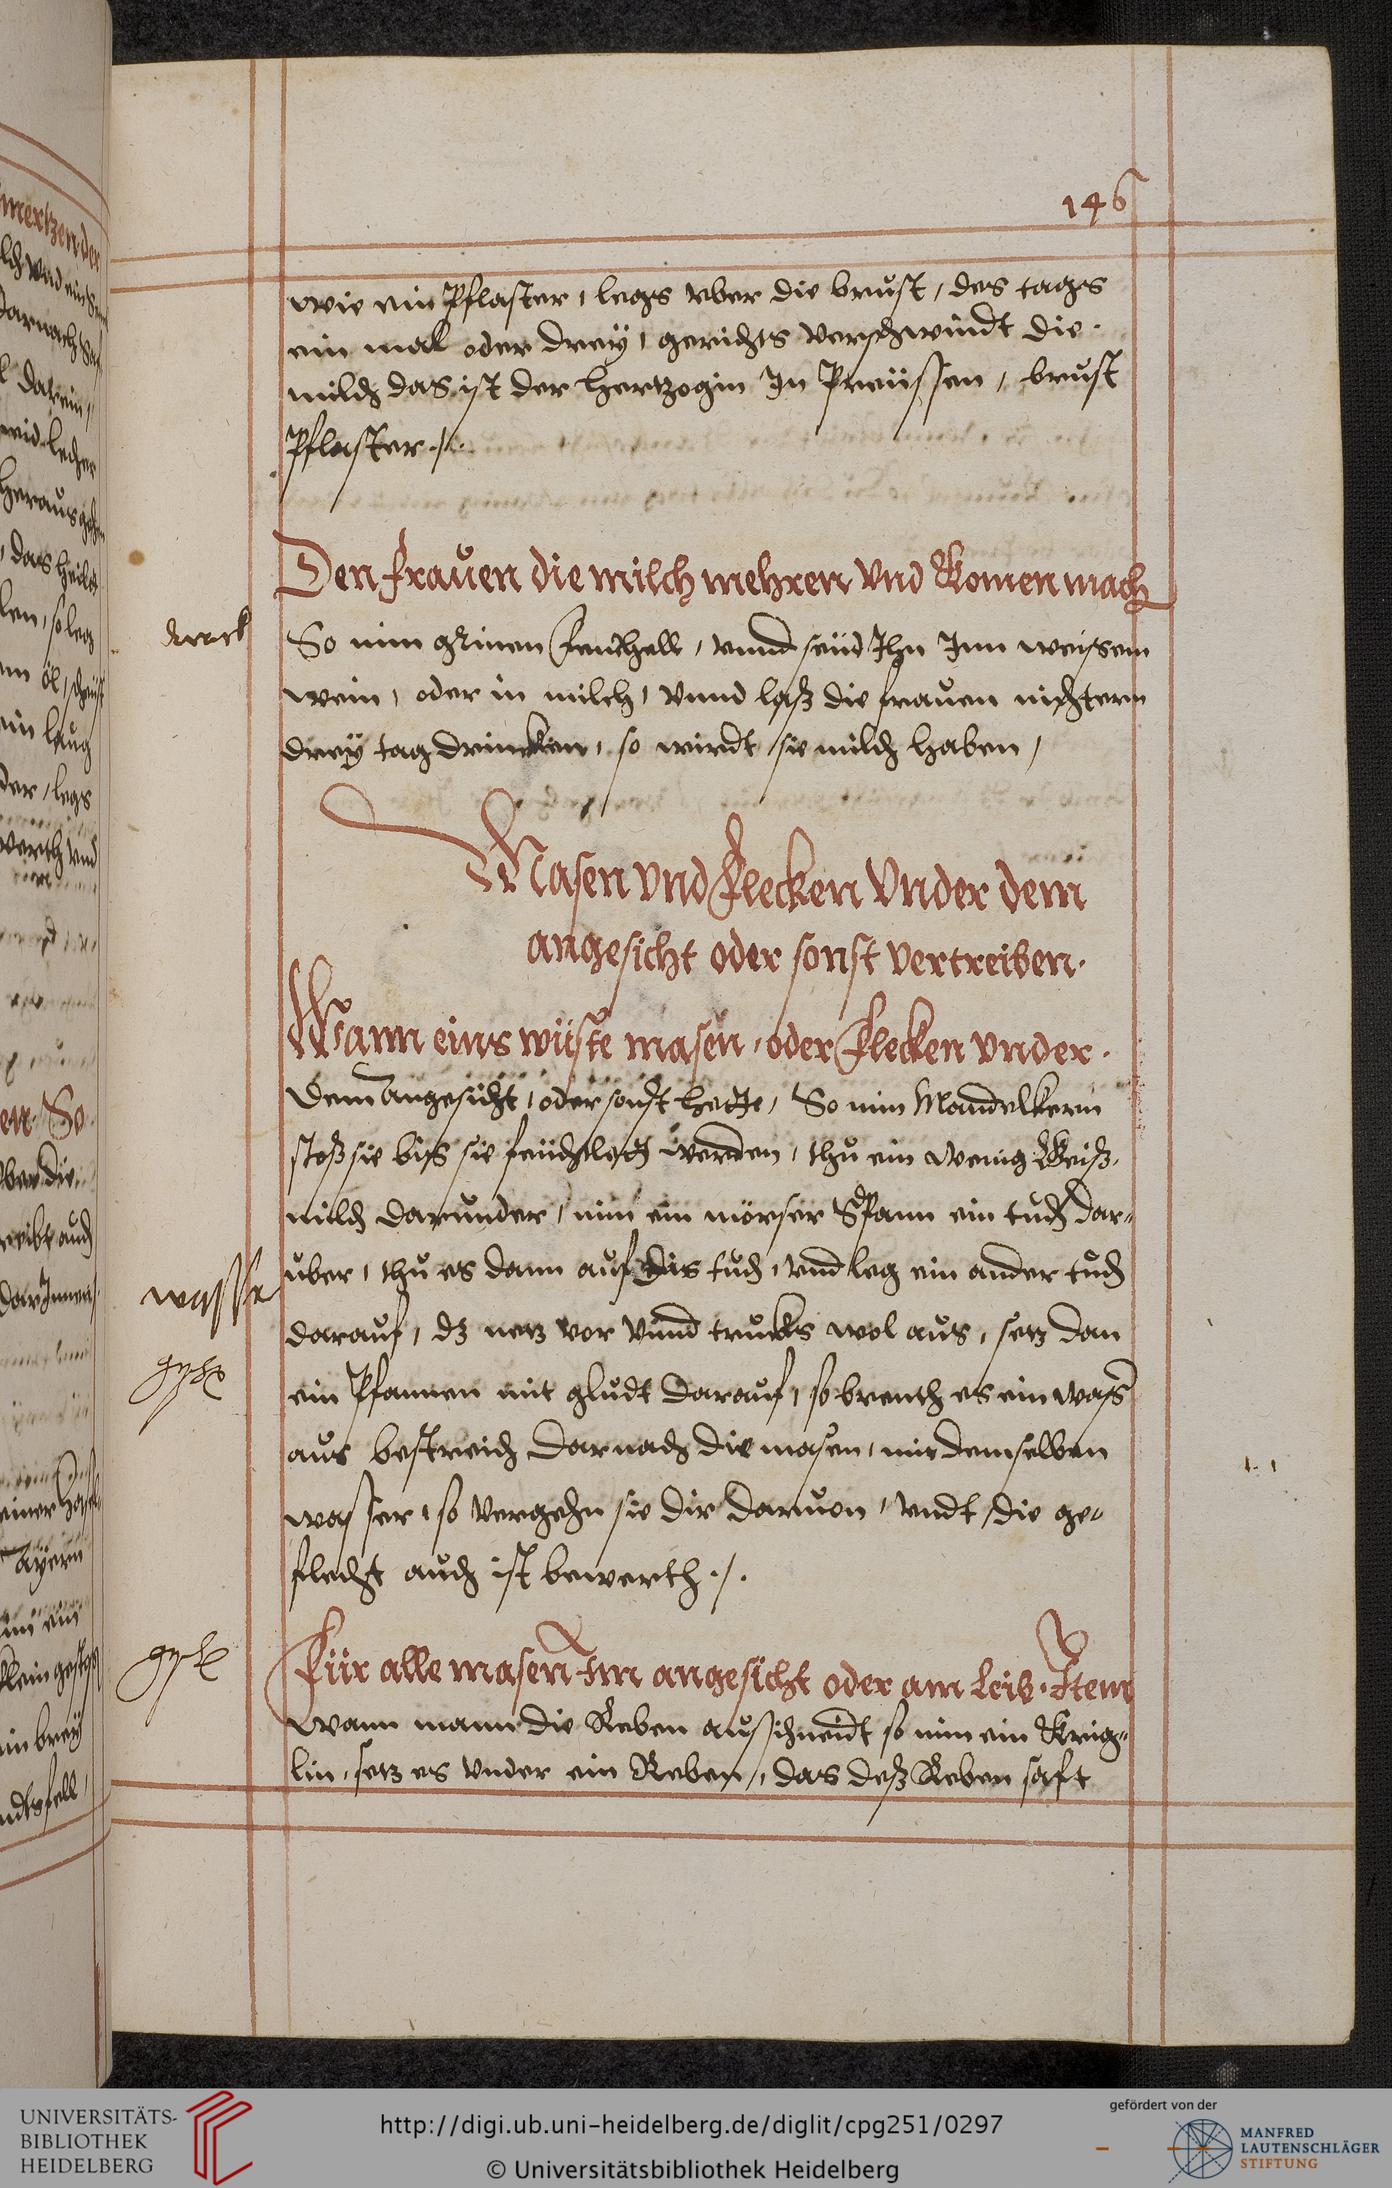 146
wie ein Pflaster, legs vber die brust, des tags
ein mal oder drey, gerichts verschwindt die
milch das ist der hertzogin In Preüssen, brust
Pflaster ./.
Den frauen die milch mehren vnd Komen mach
So nim grinen fenchell, vnnd seüd Ihn Inn weissem
wein, oder in milch, vnnd laß die frauen nichtern
drey tag drincken, so wirdt sie milch haben,
Masen vnd flecken vnder dem
angesicht oder sonst vertreiben.
Wann eins wüste masen, oder flecken vnder
dem angesicht, oder sonst hette, So nim Mandelkern
stoß sie bis sie feüchtlech werden, thu ein wenig Geiß
milch darunder, nim ein mörser Spann ein tuch dar-
uber, thu es dann auf dis tuch, vnd leg ein ander tuch
darauf, dz netz vor vnnd trucks wol aus, setz dan
ein Pfannen mit gludt darauf, so brenth es ein wass
aus bestreich darnach die masen, mit demselben
wasser, so vergehn sie dir daruon, vndt die ge-
flecht auch ist bewerth ./.
wasser
Für alle masen Im angesicht oder am leib. Item
wann mann die Reben auschneidt so nim ein Krieg-
lin, setz es vnder ein Reben, das deß Reben saft
UNIVERSITÄTS-
BIBLIOTHEK
HEIDELBERG
http://digi.ub.uni-heidelberg.de/diglit/cpg251/0297
© Universitätsbibliothek Heidelberg
gefördert von der
MANFRED
LAUTENSCHLÄGER
STIFTUNG